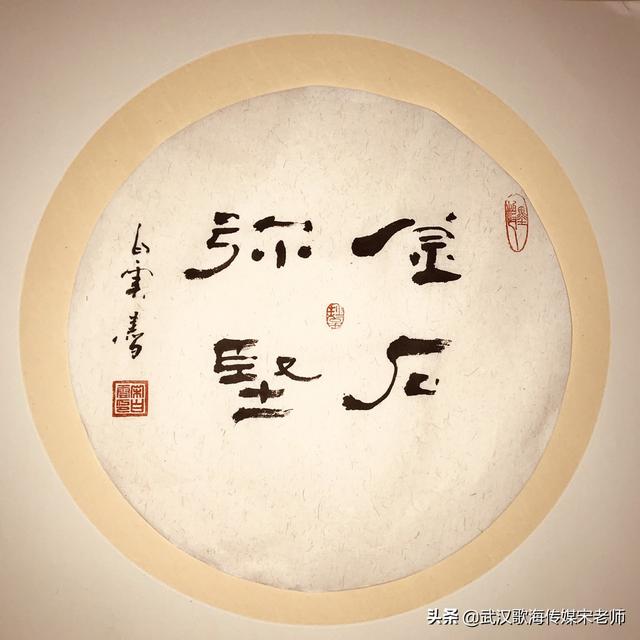 金石
弥堅
白雲書
头条 @武汉歌海传媒宋老师